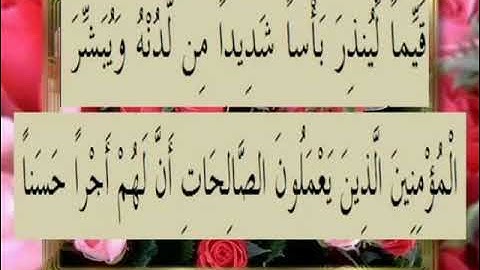 قَيِّماً لِّيُنذِرَ بَأْساً شَدِيداً مِن لَّدُنْهُ وَيُبَشِّرَ
الْمُؤْمِنِينَ الَّذِينَ يَعْمَلُونَ الصَّالِحَاتِ أَنَّ لَهُمْ أَجْراً حَسَناً